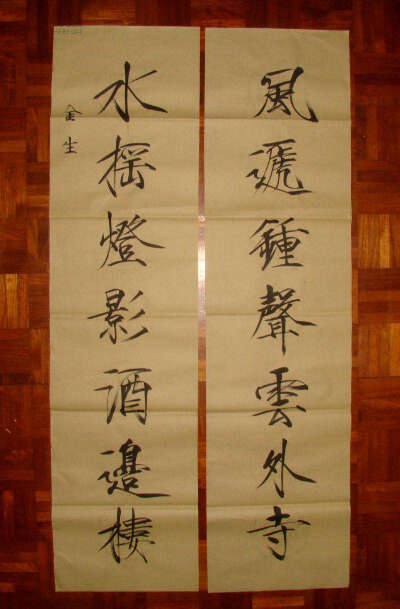 風遞鍾聲雲外寺
水摇燈影酒邊樓
金生